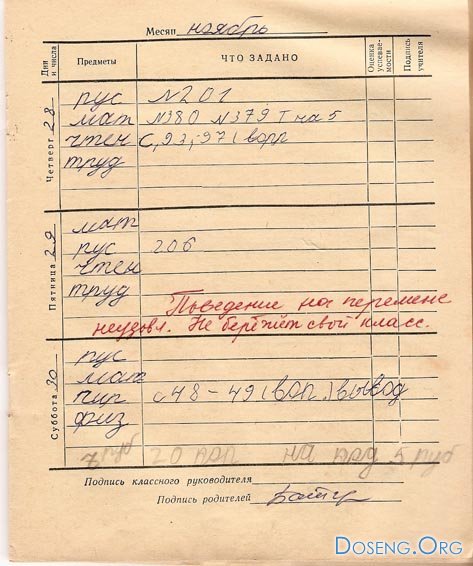 Месяц ноябрь
Дни и числа Предметы ЧТО ЗАДАНО Оценка успеваемости Подпись учителя
Четверг 28
рус №201
мат №380 №379 Т на 5
чтен С, 93, 97 (вопр
труд
Пятница 29
мат
рус 206
чтен
труд
Поведение на перемене
неудовл. Не бережёт свой класс.
Суббота 30
рус
мат
пир с 48-49 (воп.) вывод
физ
7 руб 20 коп на 5 руб
Подпись классного руководителя
Подпись родителей
Doseng.Org